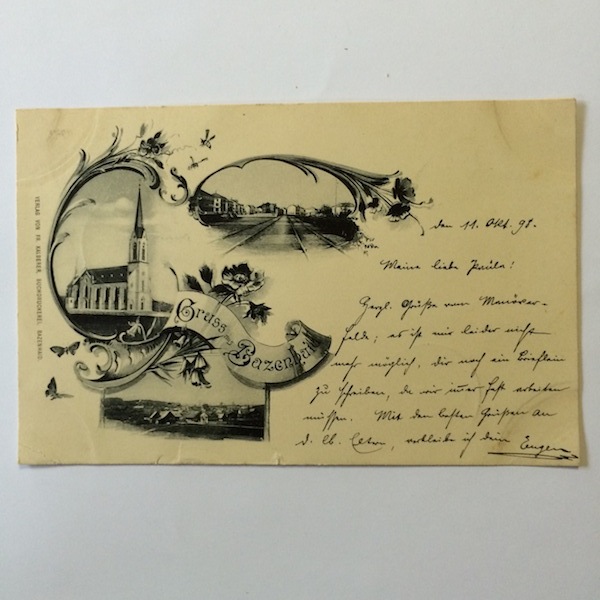 VERLAG VON FR. KALBERER, BUCHDRUCKEREI, BAZENHAID
Gruss aus
Bazenhaid
den 11. Okt. 98.
Meine liebe Paula!
Herzl. Grüße vom Manöver-
felde; es ist mir leider nicht
mehr möglich, dir noch ein Brieflein
zu schreiben, da wir immer fest arbeiten
müssen. Mit den besten Grüßen an
d. lb. Eltern, verbleibe ich dein Eugen